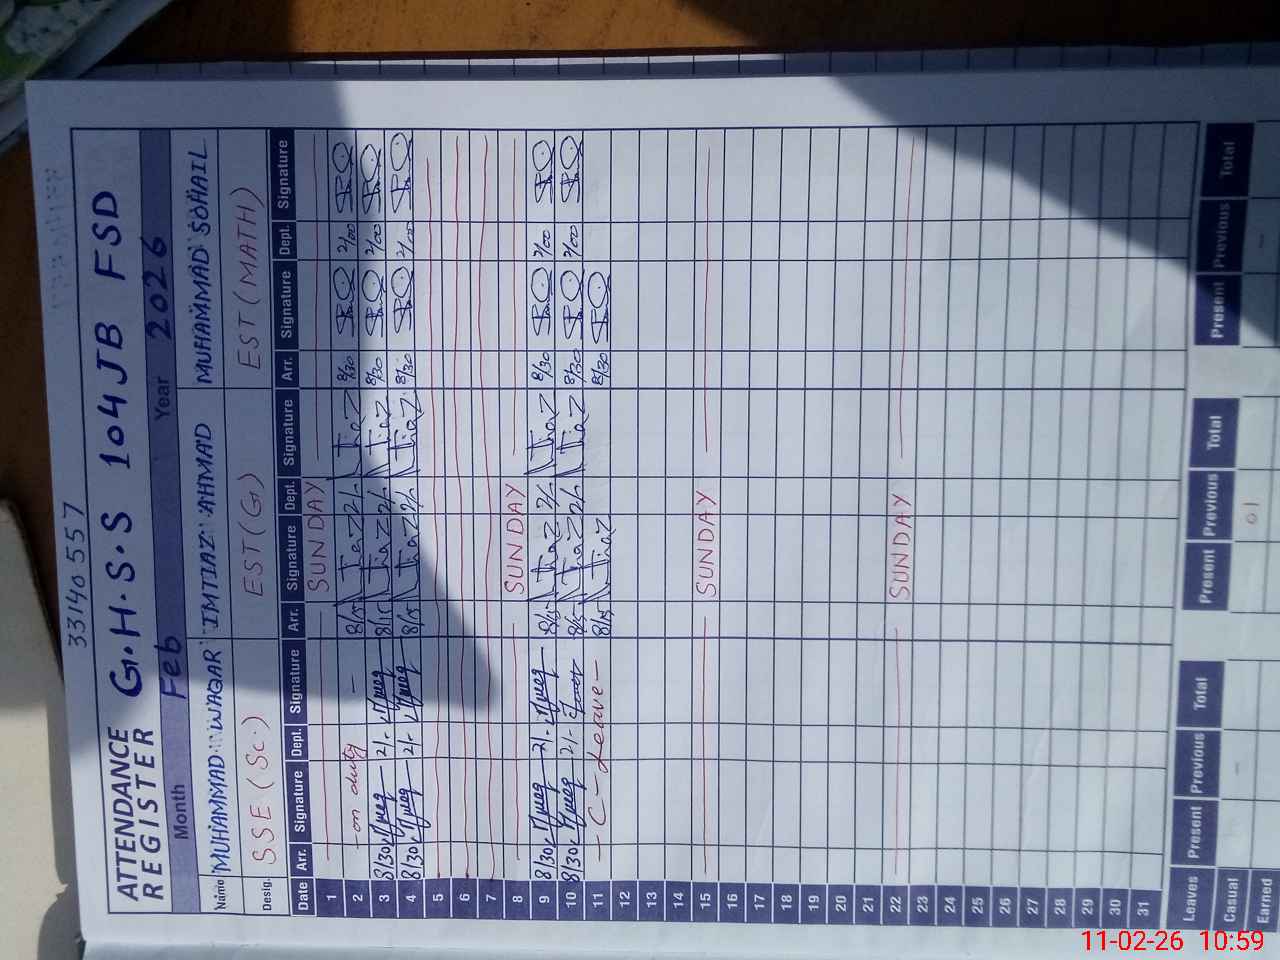 33140557
ATTENDANCE REGISTER G.H.S.S 104 JB FSD
Month Feb Year 2026
Name MUHAMMAD WAQAR IMTIAZ AHMAD MUHAMMAD SOHAIL
Desig. SSE (Sc.) EST (G) EST (MATH)
Date Arr. Signature Dept. Signature Arr. Signature Dept. Signature Arr. Signature Dept. Signature
1 SUNDAY
2 - on duty - 8/15 2/- 8/30 2/00
3 8/30 2/- 8/15 2/- 8/30 2/00
4 8/30 2/- 8/15 2/- 8/30 2/00
5
6
7
8 SUNDAY
9 8/30 2/- 8/15 2/- 8/30 2/00
10 8/30 2/- 8/15 2/- 8/30 2/00
11 - C - Leave - 8/15 8/30
12
13
14
15 SUNDAY
16
17
18
19
20
21
22 SUNDAY
23
24
25
26
27
28
29
30
31
Leaves Present Previous Total Present Previous Total Present Previous Total
Casual - 01 -
Earned
11-02-26 10:59